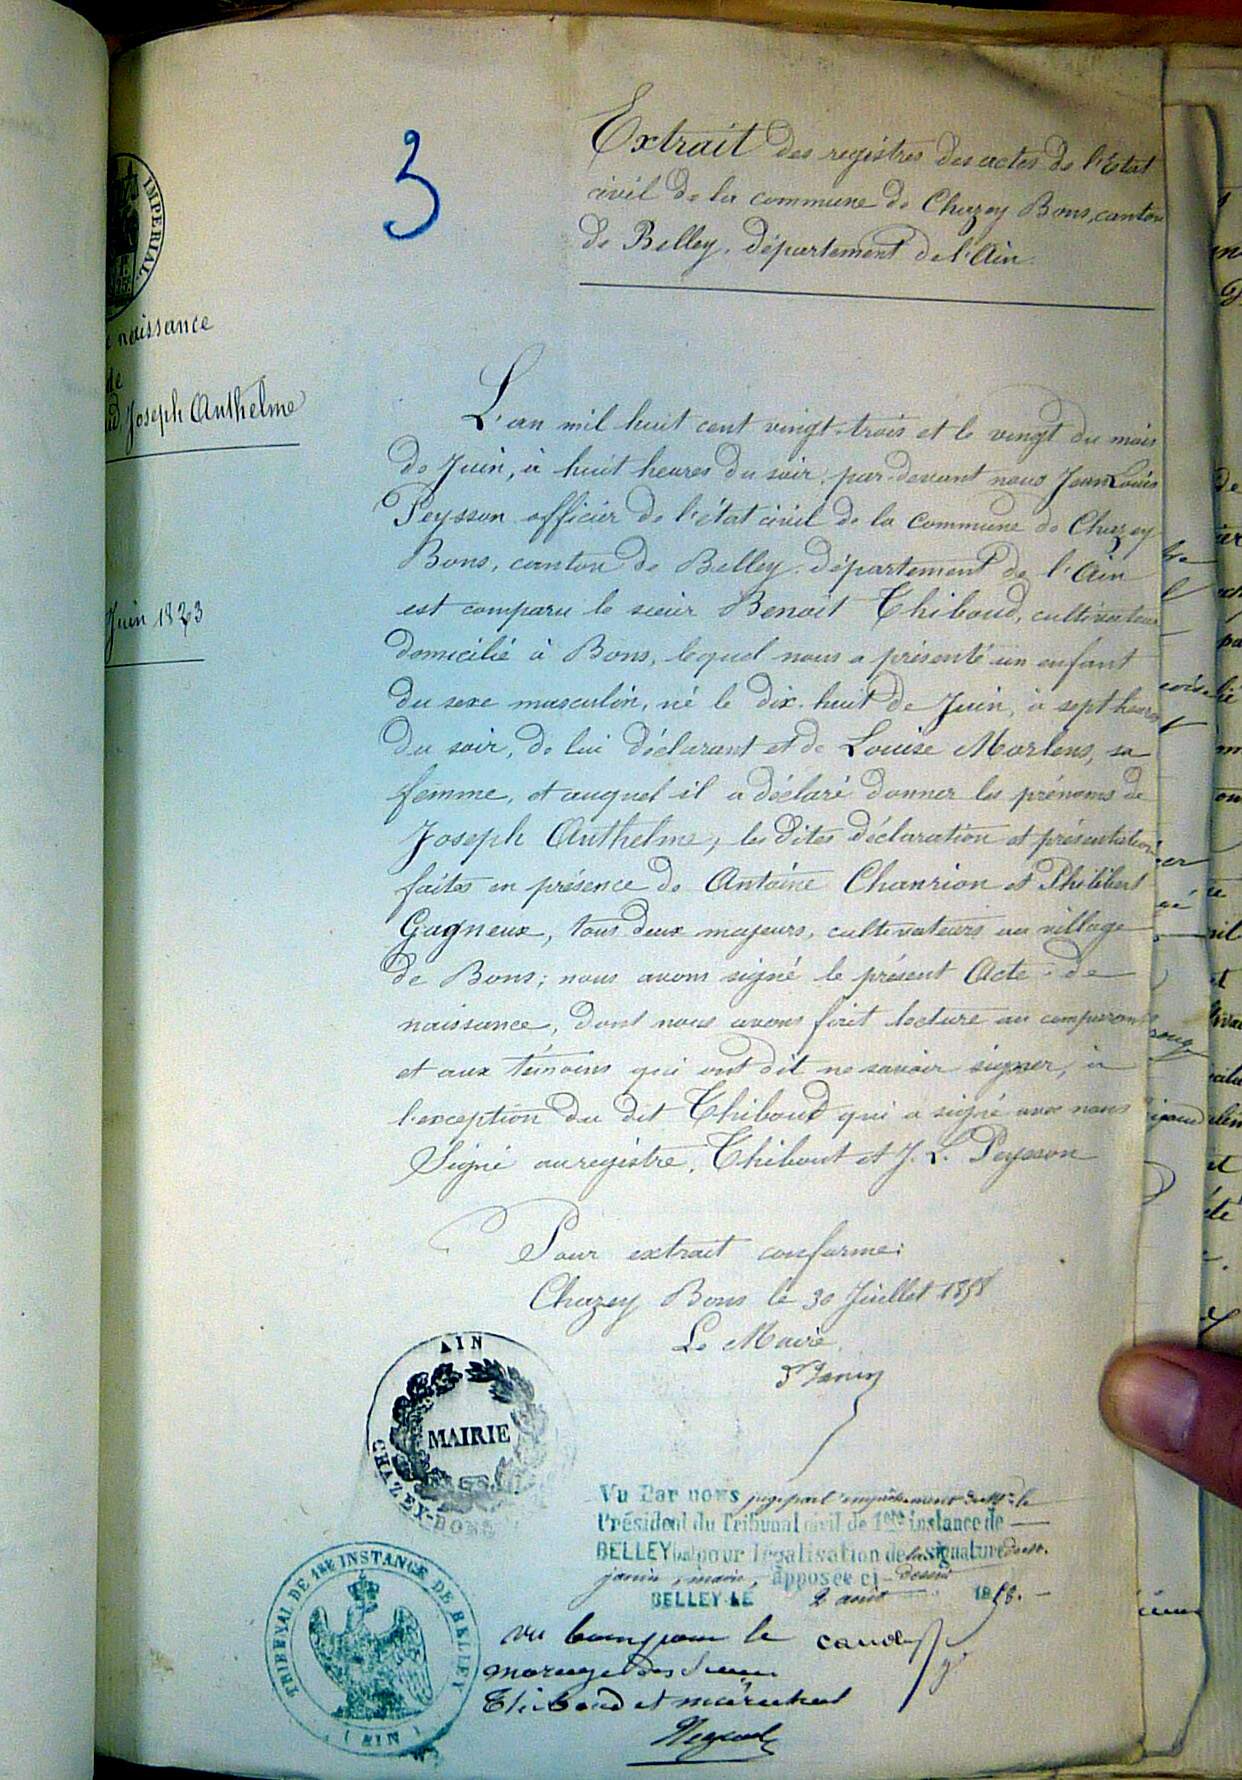 3
IMPERIAL
naissance
de
Joseph Anthelme
Juin 1823
Extrait des registres des actes de l'Etat
civil de la commune de Chazey Bons, canton
de Belley, département de l'Ain.
L'an mil huit cent vingt-trois et le vingt du mois
de Juin, à huit heures du soir, par-devant nous Jean Louis
Peysson officier de l'état civil de la commune de Chazey
Bons, canton de Belley, département de l'Ain
est comparu le sieur Benoit Thiboud, cultivateur
domicilié à Bons, lequel nous a présenté un enfant
du sexe masculin, né le dix-huit de Juin, à sept heures
du soir, de lui déclarant et de Louise Martens, sa
femme, et auquel il a déclaré donner les prénoms de
Joseph Anthelme, les dites déclaration et présentation
faites en présence de Antoine Chanrion et Philibert
Gagneux, tous deux majeurs, cultivateurs au village
de Bons; nous avons signé le présent Acte de
naissance, dont nous avons fait lecture au comparant
et aux témoins qui ont dit ne savoir signer, à
l'exception du dit Thiboud qui a signé avec nous
Signé au registre, Thibout et J. L. Peysson
Pour extrait conforme:
Chazey Bons le 30 Juillet 1858
Le Maire
Janin
AIN
MAIRIE
CHAZEY-BONS
Vu Par nous juge par l'empêchement de Mr le
Président du Tribunal civil de 1ère instance de
BELLEY pour légalisation de la signature de Mr.
janin, maire, apposée ci-dessus
BELLEY LE 2 aout 1858.
TRIBUNAL DE 1ERE INSTANCE DE BELLEY
(AIN)
vu
le
mariage des Sieurs
Thiboud et maréchal